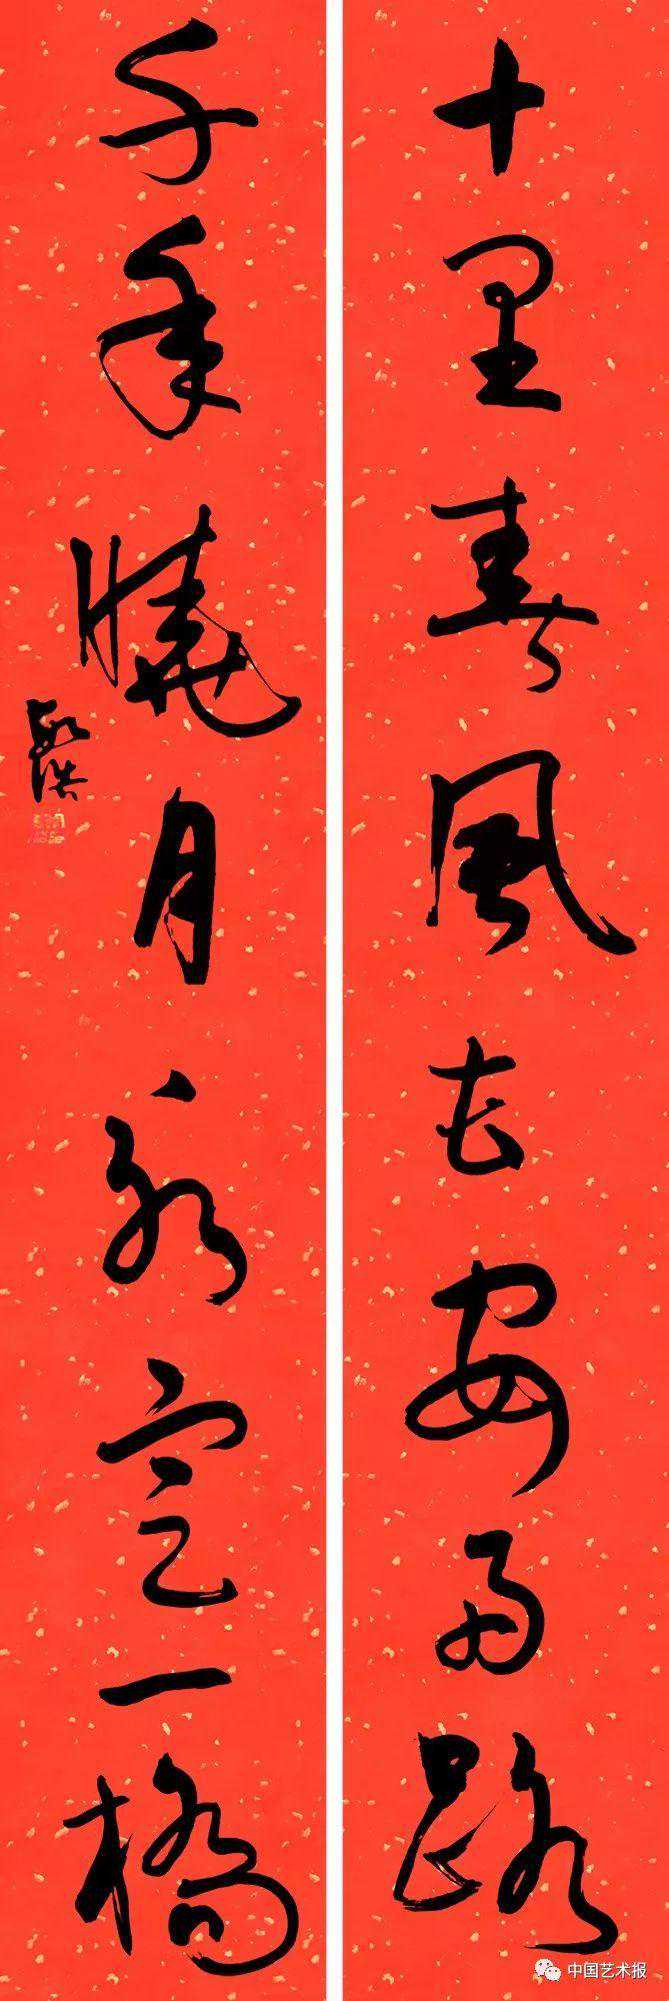 十里春風长安路
千年曉月永定一橋
中国艺术报